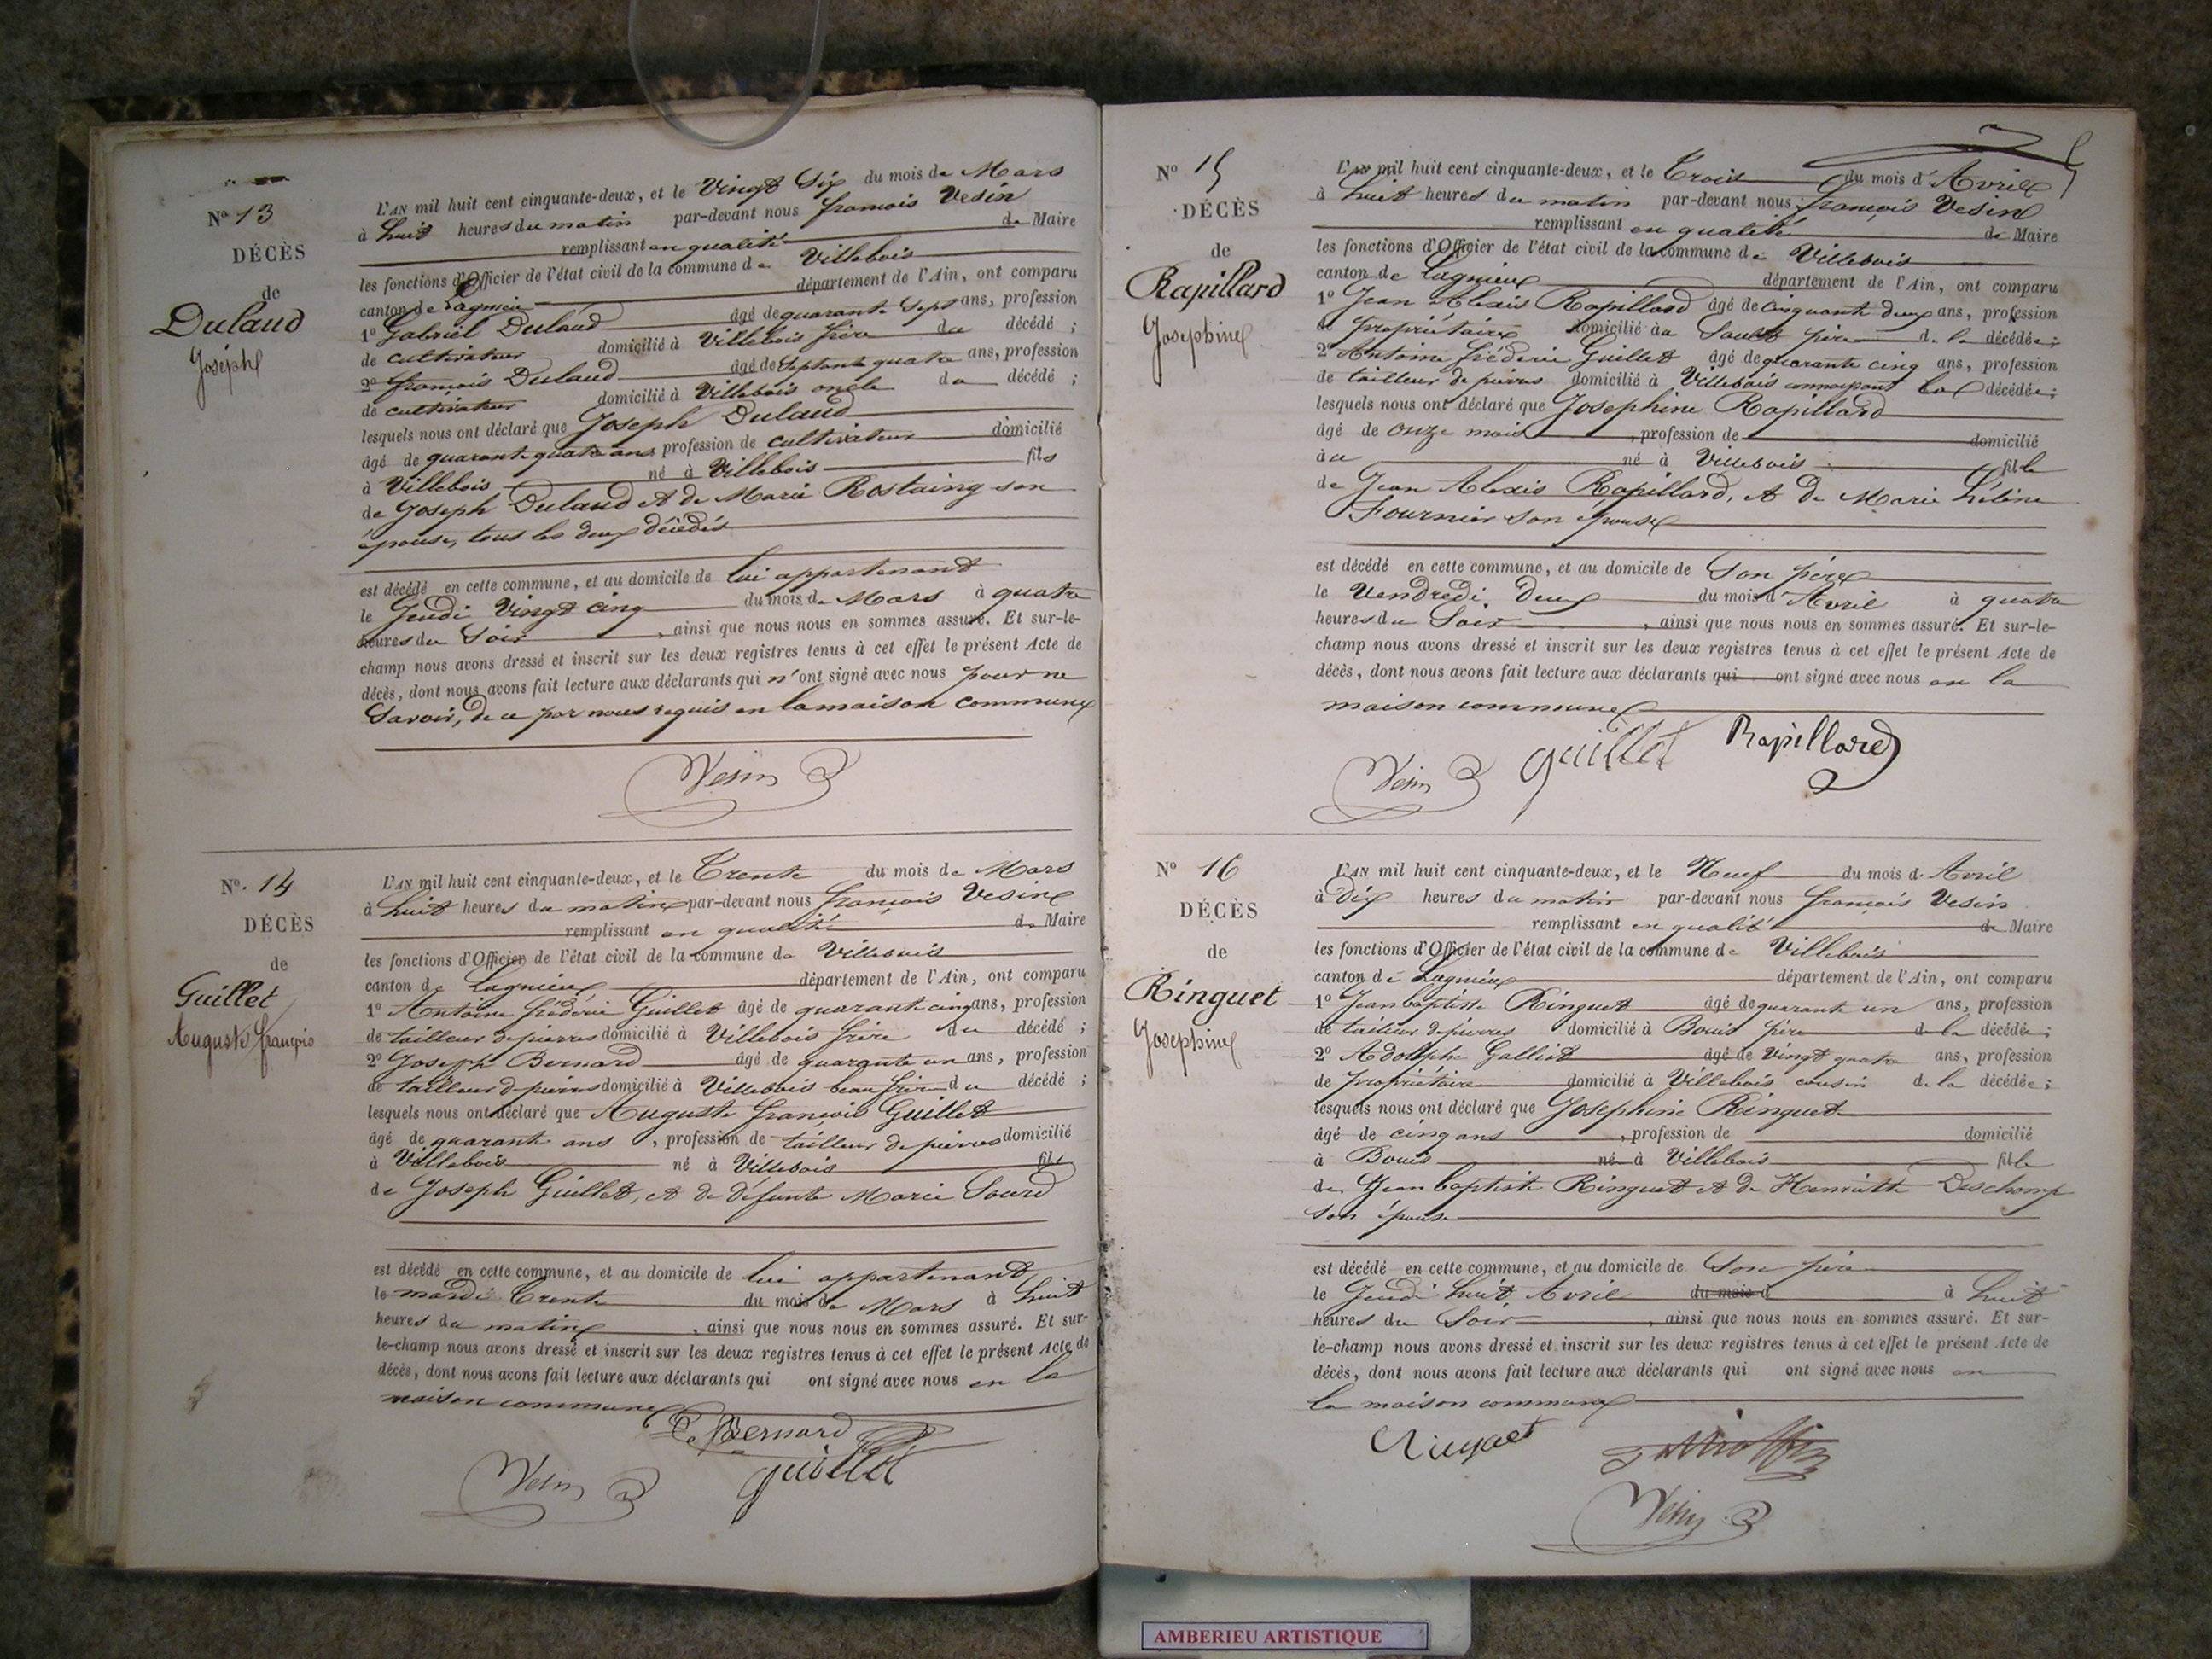 Nº 13
DÉCÈS
de
Dulaud
Joseph
L'AN mil huit cent cinquante-deux, et le Vingt Six du mois de Mars
à huit heures du matin par-devant nous françois Vesin
remplissant en qualité de Maire
les fonctions d'Officier de l'état civil de la commune de Villebois
canton de Lagnieu département de l'Ain, ont comparu
1º Gabriel Dulaud âgé de quarante Sept ans, profession
de cultivateur domicilié à Villebois frère du décédé ;
2º françois Dulaud âgé de Septante quatre ans, profession
de cultivateur domicilié à Villebois oncle du décédé ;
lesquels nous ont déclaré que Joseph Dulaud
âgé de quarante quatre ans, profession de cultivateur domicilié
à Villebois né à Villebois fils
de Joseph Dulaud et de Marie Rostaing son
épouse, tous les deux décédés
est décédé en cette commune, et au domicile de lui appartenant
le Jeudi Vingt cinq du mois de Mars à quatre
heures du Soir, ainsi que nous nous en sommes assuré. Et sur-le-
champ nous avons dressé et inscrit sur les deux registres tenus à cet effet le présent Acte de
décès, dont nous avons fait lecture aux déclarants qui n'ont signé avec nous pour ne
Savoir, de ce par nous requis en la maison commune
Vesin
Nº. 14
DÉCÈS
de
Guillet
Auguste françois
L'AN mil huit cent cinquante-deux, et le Trente du mois de Mars
à huit heures du matin par-devant nous françois Vesin
remplissant en qualité de Maire
les fonctions d'Officier de l'état civil de la commune de Villebois
canton de Lagnieu département de l'Ain, ont comparu
1º Antoine frédéric Guillet âgé de quarante cinq ans, profession
de tailleur de pierres domicilié à Villebois frère du décédé ;
2º Joseph Bernard âgé de quarante un ans, profession
de tailleur de pierres domicilié à Villebois beau frère du décédé ;
lesquels nous ont déclaré que Auguste françois Guillet
âgé de quarante ans, profession de tailleur de pierres domicilié
à Villebois né à Villebois fils
de Joseph Guillet, et de défunte Marie Sourd
est décédé en cette commune, et au domicile de lui appartenant
le mardi Trente du mois de Mars à huit
heures du matin, ainsi que nous nous en sommes assuré. Et sur-
le-champ nous avons dressé et inscrit sur les deux registres tenus à cet effet le présent Acte de
décès, dont nous avons fait lecture aux déclarants qui ont signé avec nous en la
maison commune
Bernard
Vesin guillet
Nº 15
DÉCÈS
de
Rapillard
Josephine
L'AN mil huit cent cinquante-deux, et le Trois du mois d'Avril
à huit heures du matin par-devant nous françois Vesin
remplissant en qualité de Maire
les fonctions d'Officier de l'état civil de la commune de Villebois
canton de Lagnieu département de l'Ain, ont comparu
1º Jean Alexis Rapillard âgé de cinquante deux ans, profession
de propriétaire domicilié au Sault père de la décédée ;
2º Antoine frédéric Guillet âgé de quarante cinq ans, profession
de tailleur de pierres domicilié à Villebois connaissant la décédée ;
lesquels nous ont déclaré que Josephine Rapillard
âgé de onze mois, profession de domicilié
au né à Villebois fille
de Jean Alexis Rapillard, et de Marie Hélène
Fournier son épouse
est décédé en cette commune, et au domicile de Son père
le Vendredi Deux du mois d'Avril à quatre
heures du Soir, ainsi que nous nous en sommes assuré. Et sur-le-
champ nous avons dressé et inscrit sur les deux registres tenus à cet effet le présent Acte de
décès, dont nous avons fait lecture aux déclarants qui ont signé avec nous en la
maison commune
Vesin guillet Rapillard
Nº 16
DÉCÈS
de
Ringuet
Josephine
L'AN mil huit cent cinquante-deux, et le Neuf du mois d'Avril
à Dix heures du matin par-devant nous françois Vesin
remplissant en qualité de Maire
les fonctions d'Officier de l'état civil de la commune de Villebois
canton de Lagnieu département de l'Ain, ont comparu
1º Jean baptiste Ringuet âgé de quarante un ans, profession
de tailleur de pierres domicilié à Bouis père de la décédée ;
2º Adolphe Galliot âgé de Vingt quatre ans, profession
de propriétaire domicilié à Villebois cousin de la décédée ;
lesquels nous ont déclaré que Josephine Ringuet
âgé de cinq ans, profession de domicilié
à Bouis né à Villebois fille
de Jean baptiste Ringuet et de Henriette Deschamp
son épouse
est décédé en cette commune, et au domicile de Son père
le Jeudi huit Avril du mois d à huit
heures du Soir, ainsi que nous nous en sommes assuré. Et sur-
le-champ nous avons dressé et inscrit sur les deux registres tenus à cet effet le présent Acte de
décès, dont nous avons fait lecture aux déclarants qui ont signé avec nous en
la maison commune
Ringuet
Vesin
AMBERIEU ARTISTIQUE